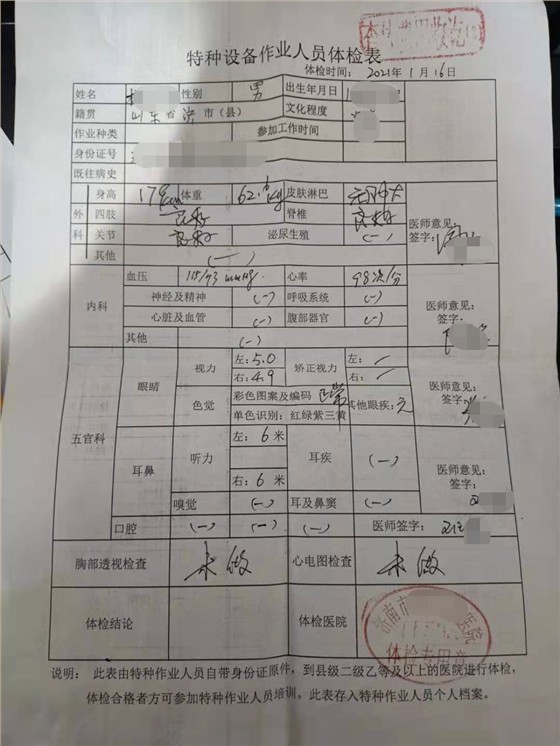 特种设备作业人员体检表
体检时间：2021年1月16日
姓名 性别 男 出生年月日
籍贯 山东省 市（县） 文化程度
作业种类 参加工作时间
身份证号
既往病史
外科 身高 体重 皮肤淋巴 医师意见：
四肢 良好 脊椎 良好 签字：
关节 良好 泌尿生殖 (一)
其他 (一)
内科 血压 mmHg 心率 98次/分
神经及精神 (一) 呼吸系统 (一) 医师意见：
心脏及血管 (一) 腹部器官 (一) 签字：
其他 (一)
五官科 眼睛 视力 左：5.0 矫正视力 左：/
右：4.9 右：/
色觉 彩色图案及编码 正常 其他眼疾：无 医师意见：
单色识别：红绿紫三黄 签字：
耳鼻 听力 左：6米 耳疾 (一) 医师意见：
右：6米 签字：
嗅觉 (一) 耳及鼻窦 (一)
口腔 (一) (一) (一) 医师签字：
胸部透视检查 未做 心电图检查 未做
体检结论 体检医院
济南市 医院
体检专用章
说明：此表由特种作业人员自带身份证原件，到县级二级乙等及以上的医院进行体检，
体检合格者方可参加特种作业人员培训。此表存入特种作业人员个人档案。